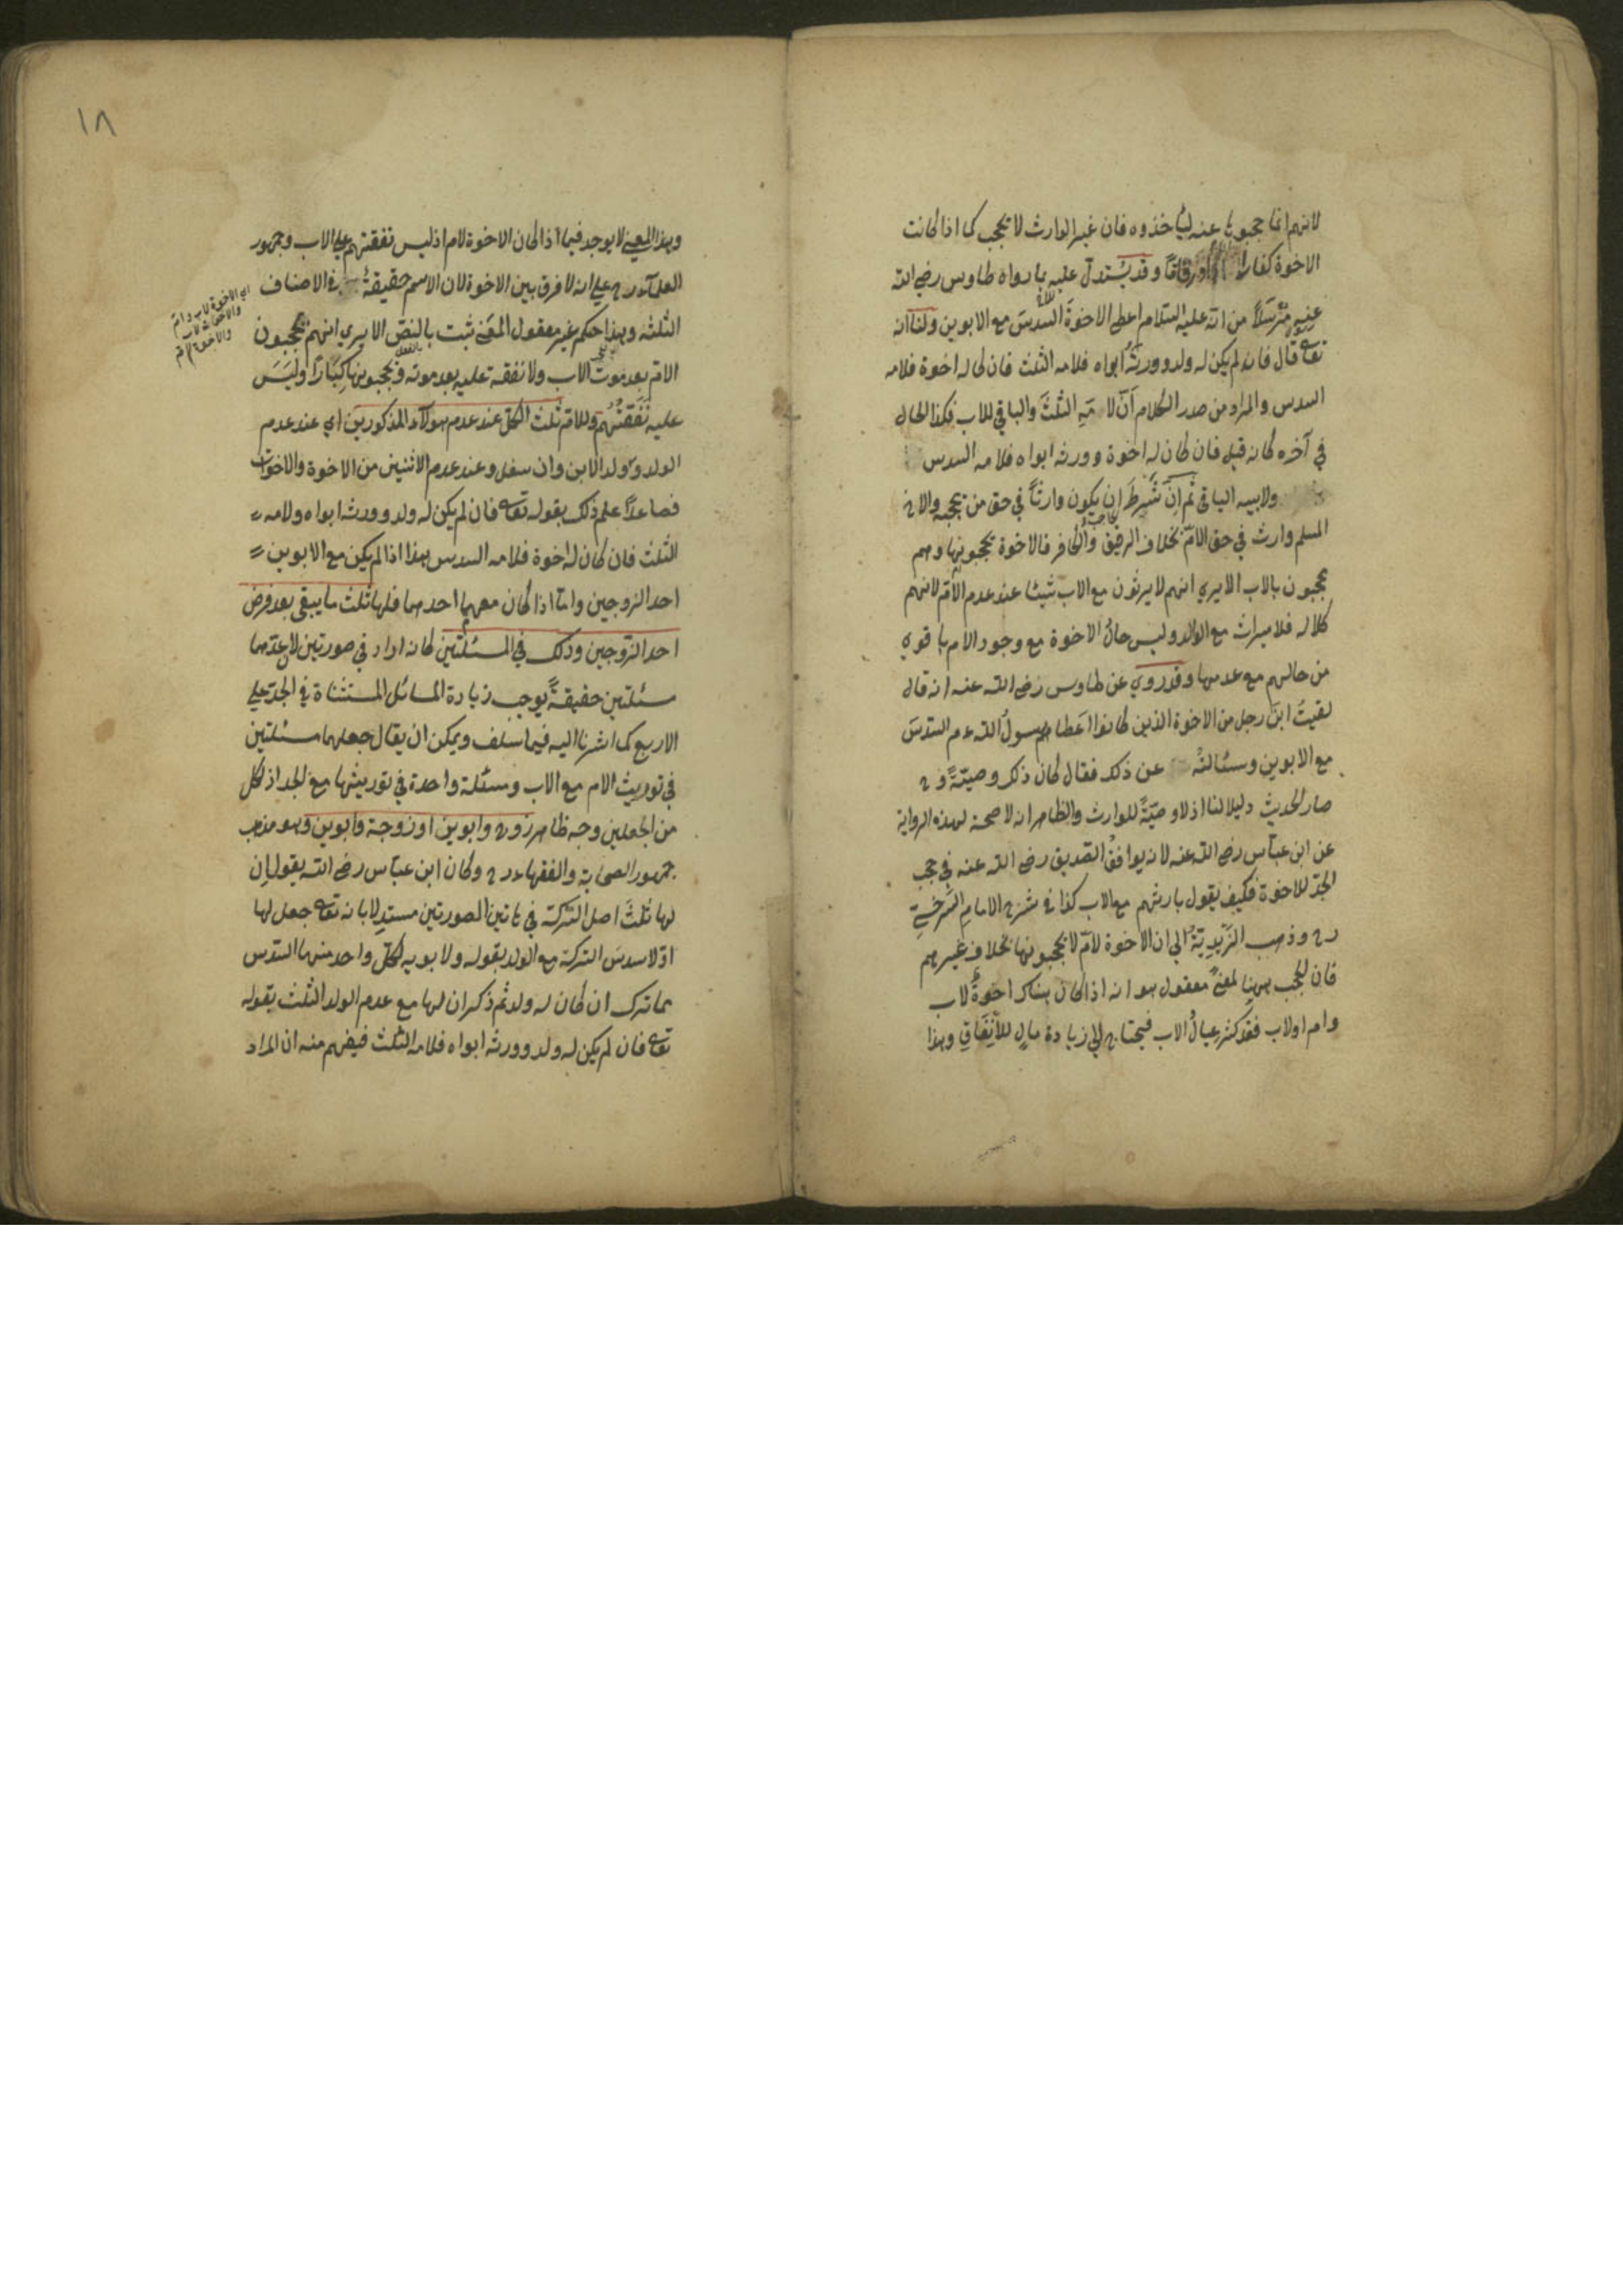 لانهم انما حجبوها عنه ليأخذوه فان غير الوارث لا يحجب كما اذا كانت
الاخوة كفارا او رقاقا وقد يستدل عليه بما رواه طاوس رضي الله
عنه مرسلا من انه عليه السلام اعطى الاخوة السدس مع الابوين ولنا انه
تعالى قال فان لم يكن له ولد وورثه ابواه فلامه الثلث فان كان له اخوة فلامه
السدس والمراد من صدر الكلام ان لامه الثلث والباقي للاب فكذا الحال
في آخره كانه قيل فان كان له اخوة وورثه ابواه فلامه السدس
ولابيه الباقي ثم ان شرط ان يكون وارثا في حق من يحجبه والاخ
المسلم وارث في حق الام بخلاف الرقيق والكافر فالاخوة يحجبونها وهم
يحجبون بالاب الا يرى انهم لا يرثون مع الاب شيئا عند عدم الام لانهم
كلالة فلا ميراث مع الوالد وليس حال الاخوة مع وجود الام باقوى
من حالهم مع عدمها وقد روي عن طاوس رضي الله عنه انه قال
لقيت ابن رجل من الاخوة الذين كانوا اعطاهم رسول الله عم السدس
مع الابوين وسئالته عن ذلك فقال كان ذلك وصية وح
صار الحديث دليلا لنا اذ لا وصية للوارث والظاهر انه لا صحة لهذه الرواية
عن ابن عباس رضي الله عنه لانه يوافق الصديق رضي الله عنه في حجب
الجد للاخوة فكيف يقول بارثهم مع الاب كذا في شرح الامام السرخسي
رح وذهب الزيدية الى ان الاخوة لام لا يحجبونها بخلاف غيرهم
فان الحجب ههنا لمعنى معقول هو انه اذا كان هناك اخوة لاب
وام او لاب فقد كثر عيال الاب فيحتاج الى زيادة مال للانفاق وهذا
١٨
وهذا المعنى لا يوجد فيما اذا كان الاخوة لام اذ ليس نفقتهم على الاب وجمهور
العلماء رح على انه لا فرق بين الاخوة لان الاسم حقيقة في الاصناف
اي الاخوة لاب وام
والاخوة لاب
والاخوة لام
الثلثة وهذا حكم غير معقول المعنى ثبت بالنص الا يرى انهم يحجبون
الام بعد موت الاب ولا نفقة عليه بعد موته ويحجبونها كبارا وليس
عليه نفقتهم وللام ثلث الكل عند عدم هولاء المذكورين اي عند عدم
الولد وولد الابن وان سفل وعند عدم الاثنين من الاخوة والاخوات
فصاعدا علم ذلك بقوله تعالى فان لم يكن له ولد وورثه ابواه ولامه
الثلث فان كان له اخوة فلامه السدس هذا اذا لم يكن مع الابوين
احد الزوجين واما اذا كان معهما احدهما فلها ثلث ما يبقى بعد فرض
احد الزوجين وذلك في المسئلتين كانه اراد في صورتين لان عدهما
مسئلتين حقيقة يوجب زيادة المسائل المستثناة في الجد على
الاربع كما اشرنا اليه فيما سلف ويمكن ان يقال جعلهما مسئلتين
في توريث الام مع الاب ومسئلة واحدة في توريثها مع الجد اذ لكل
من الجعلين وجه ظاهر زوج وابوين او زوجة وابوين وهو مذهب
جمهور الصحابة والفقهاء رح وكان ابن عباس رضي الله يقول ان
لها ثلث اصل التركة في هاتين الصورتين مستدلا بانه تعالى جعل لها
اولا سدس التركة مع الولد بقوله ولابويه لكل واحد منهما السدس
مما ترك ان كان له ولد ثم ذكر ان لها مع عدم الولد الثلث بقوله
تعالى فان لم يكن له ولد وورثه ابواه فلامه الثلث فيفهم منه ان المراد